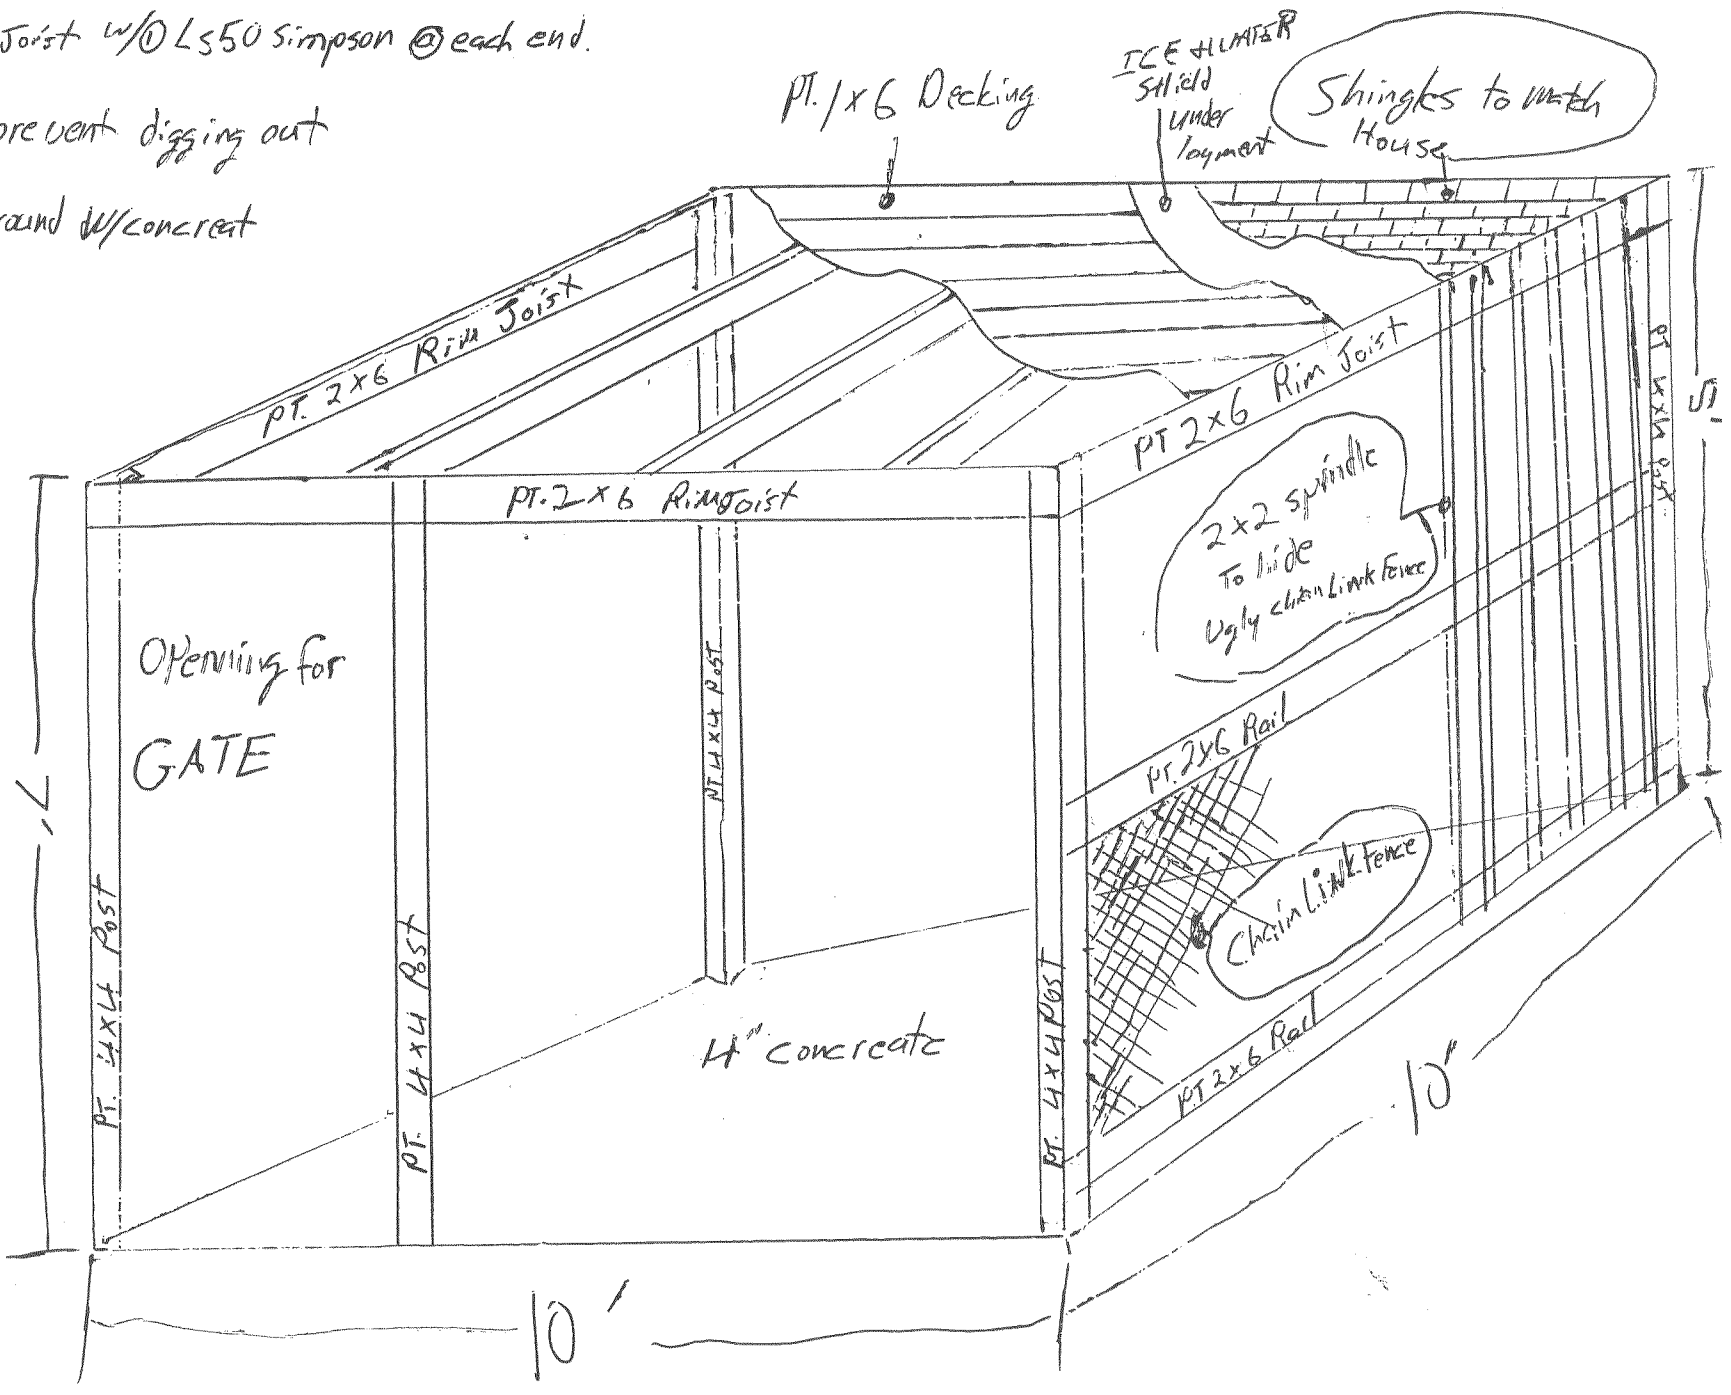 Joist w/① LS50 Simpson @ each end.
prevent digging out
round W/concreat
PT. 1x6 Decking
ICE & WATER
SHield
under
layment
Shingles to match
House
PT. 2x6 Rim Joist
PT. 2x6 Rim Joist
PT 2x6 Rim Joist
PT 4x4 Post
5'
2x2 spindle
To hide
Ugly chain Link Fence
Openning for
GATE
7'
PT 4x4 Post
PT. 2x6 Rail
Chain Link Fence
PT. 4x4 Post
PT. 4x4 Post
4" concreate
PT. 4x4 Post
PT 2x6 Rail
10"
10'